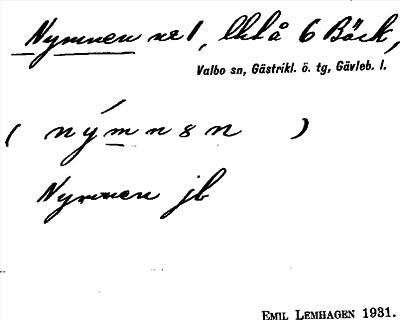 Nymnen nr 1, lhl å 6 Bäck,
Valbo sn, Gästrikl. ö. tg, Gävleb. l.
( nýmnen )
Nymnen jb
EMIL LEMHAGEN 1931.